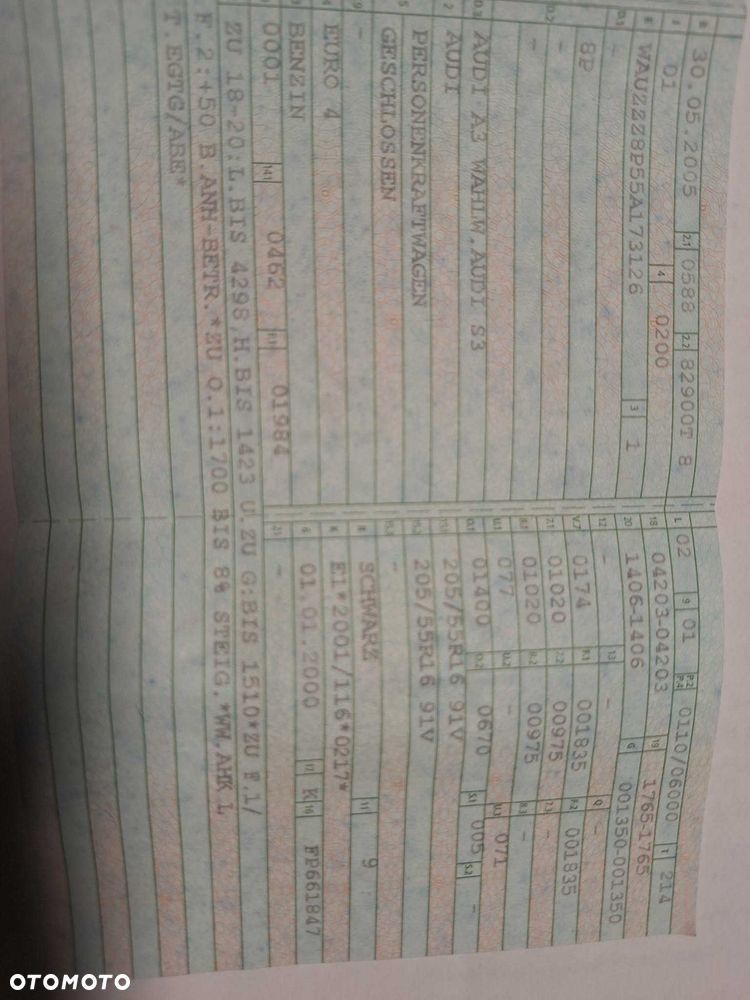 B 30.05.2005 2.1 0588 2.2 82900T 8
J 01 4 0200
E WAUZZZ8P55A173126 3 1
D.1 -
8P
D.2 -
-
D.3 AUDI A3 WAHLW.AUDI S3
2 AUDI
PERSONENKRAFTWAGEN
5 GESCHLOSSEN
9 -
EURO 4
BENZIN
0001 14.1 0462 P.1 01984
L 02 9 01 P.2 P.4 0110/06000 T 214
18 04203-04203 19 1765-1765
20 1406-1406 G 001350-001350
12 - 13 - Q -
V.7 0174 F.1 001835 F.2 001835
7.1 01020 7.2 00975 7.3 -
8.1 01020 8.2 00975 8.3 -
U.1 077 U.2 - U.3 071
O.1 01400 O.2 0670 S.1 005 S.2 -
15.1 205/55R16 91V
15.2 205/55R16 91V
15.3 -
R SCHWARZ 11 9
K E1*2001/116*0217*
6 01.01.2000 17 K 16 FP661847
21 -
ZU 18-20:L.BIS 4298,H.BIS 1423 U.ZU G:BIS 1510*ZU F.1/
F.2:+50 B.ANH-BETR.*ZU O.1:1700 BIS 8% STEIG.*WW.AHK L
T.EGTG/ABE*
OTOMOTO